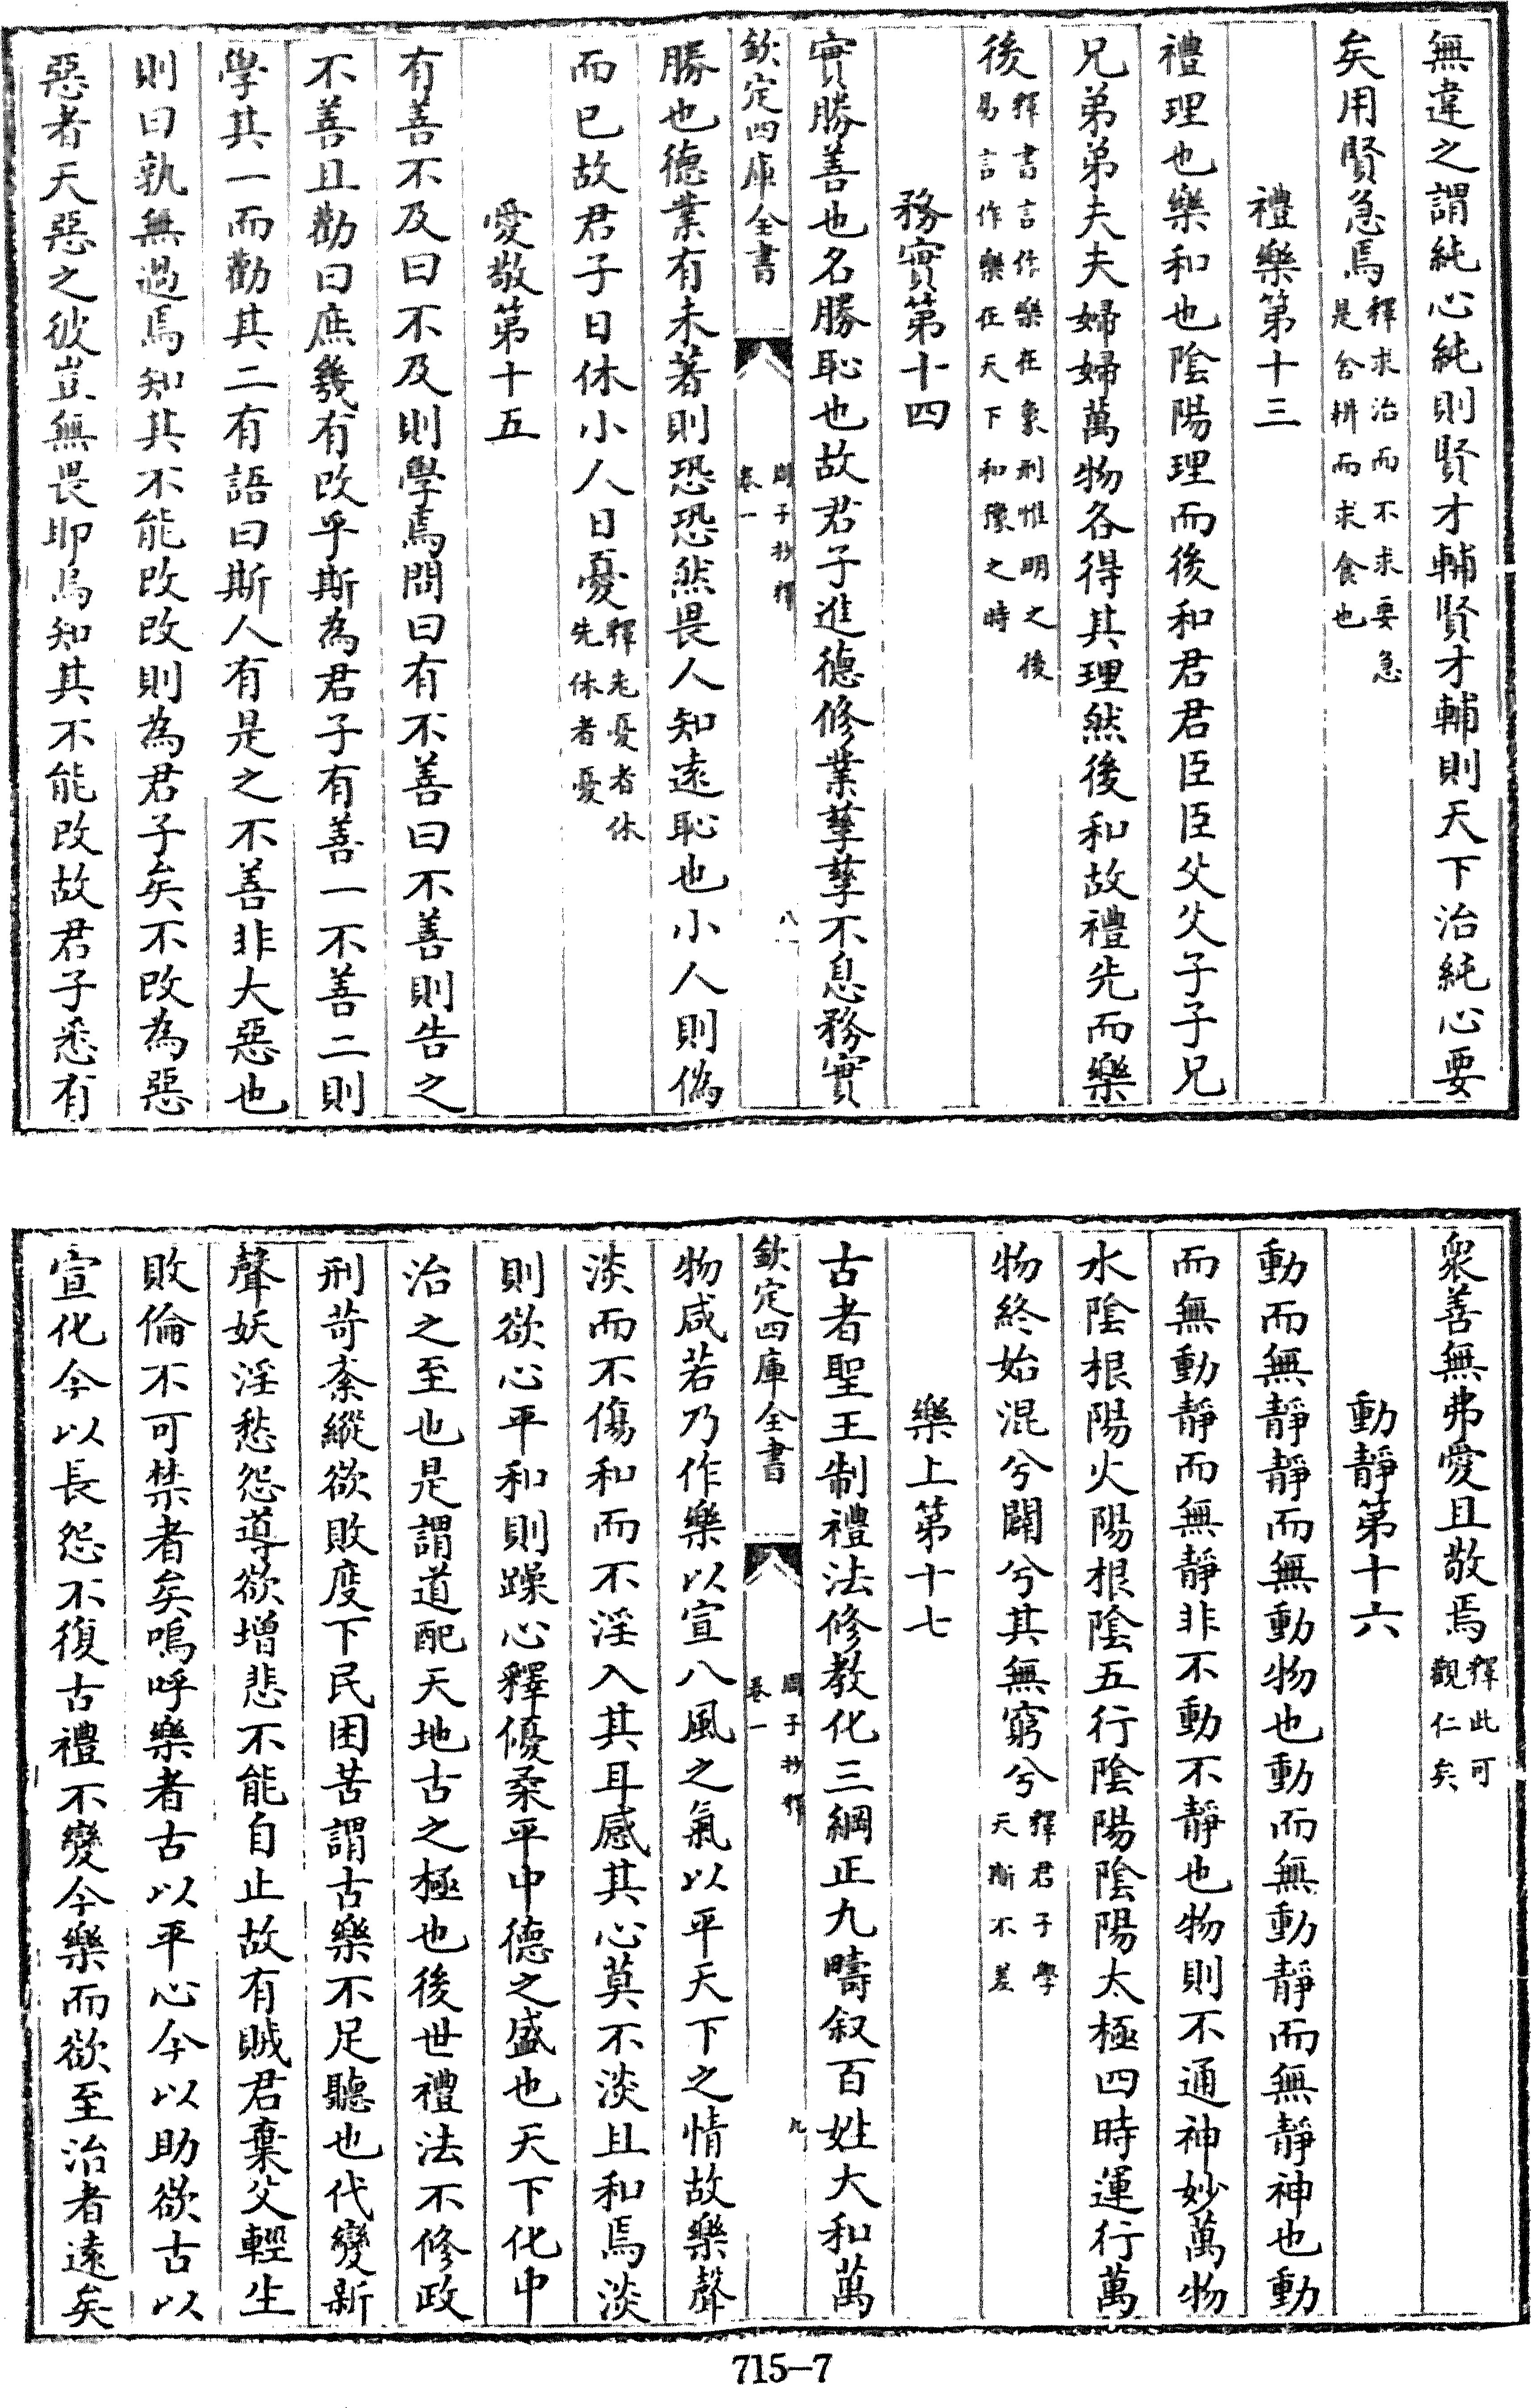 無違之謂純心純則賢才輔賢才輔則天下治純心要
矣用賢急焉釋求治而不求要急是舍耕而求食也
禮樂第十三
禮理也樂和也陰陽理而後和君君臣臣父父子子兄
兄弟弟夫夫婦婦萬物各得其理然後和故禮先而樂
後釋書言作樂在象刑惟明之後易言作樂在天下和豫之時
務實第十四
實勝善也名勝恥也故君子進德修業孳孳不息務實
欽定四庫全書 周子抄釋 卷一 八
勝也德業有未著則恐恐然畏人知遠恥也小人則偽
而已故君子日休小人日憂釋先憂者休先休者憂
愛敬第十五
有善不及曰不及則學焉問曰有不善曰不善則告之
不善且勸曰庶幾有改乎斯為君子有善一不善二則
學其一而勸其二有語曰斯人有是之不善非大惡也
則曰孰無過焉知其不能改改則為君子矣不改為惡
惡者天惡之彼豈無畏耶烏知其不能改故君子悉有
衆善無弗愛且敬焉釋此可觀仁矣
動靜第十六
動而無靜靜而無動物也動而無動靜而無靜神也動
而無動靜而無靜非不動不靜也物則不通神妙萬物
水陰根陽火陽根陰五行陰陽陰陽太極四時運行萬
物終始混兮闢兮其無窮兮釋君子學天斯不差
樂上第十七
古者聖王制禮法修教化三綱正九疇叙百姓大和萬
欽定四庫全書 周子抄釋 卷一 九
物咸若乃作樂以宣八風之氣以平天下之情故樂聲
淡而不傷和而不淫入其耳感其心莫不淡且和焉淡
則欲心平和則躁心釋優柔平中德之盛也天下化中
治之至也是謂道配天地古之極也後世禮法不修政
刑苛紊縱欲敗度下民困苦謂古樂不足聽也代變新
聲妖淫愁怨導欲增悲不能自止故有賊君棄父輕生
敗倫不可禁者矣嗚呼樂者古以平心今以助欲古以
宣化今以長怨不復古禮不變今樂而欲至治者遠矣
715-7